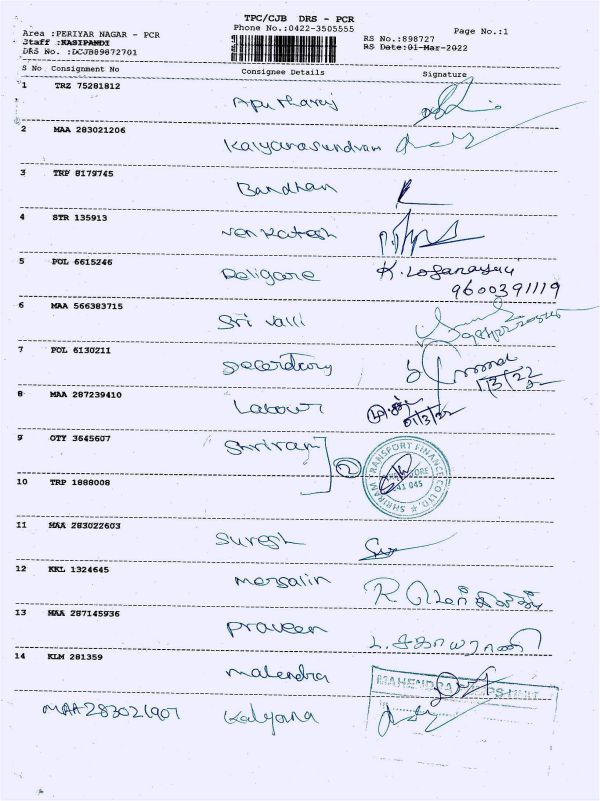 TPC/CJB DRS - PCR
Phone No.:0422-3505555
Page No.:1
Area :PERIYAR NAGAR - PCR
Staff :KASIPANDI
DRS No. :DCJB89872701
RS No.:898727
RS Date:01-Mar-2022
S No Consignment No Consignee Details Signature
1 TRZ 75281812
2 MAA 283021206 Kalyanasundram
3 TRP 8179745 Bandhan
4 STR 135913 Venkatesh
5 POL 6615246 Religare K. Loganayaki
9600391119
6 MAA 566383715 Sri Valli
7 POL 6130211 Secerdtary
1/3/22
8 MAA 287239410 Labour
01/3/22
9 OTY 3645607 Shriram
2
SHRIRAM TRANSPORT FINANCE CO LTD.
641 045
10 TRP 1888008
11 MAA 283022603 Suresh
12 KKL 1324645 Mersalin
13 MAA 287145936 Praveen
14 KLM 281359 Mahendra
MAHENDRA
MAA283021907 Kalyana